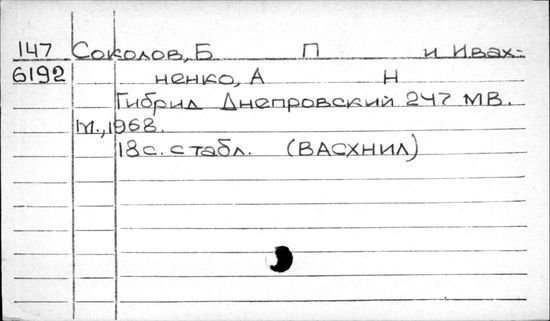 147 Соколов, Б П и Ивах-
6192 ненко, А Н
Гибрид Днепровский 247 МВ.
М., 1968.
18с. с табл. (ВАСХНИЛ)